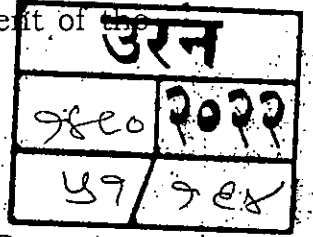 ent of the
उरन
१४९० २०२२
५१ / १९४